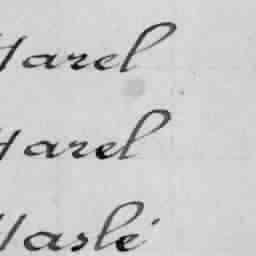 Harel
Harel
Haslé